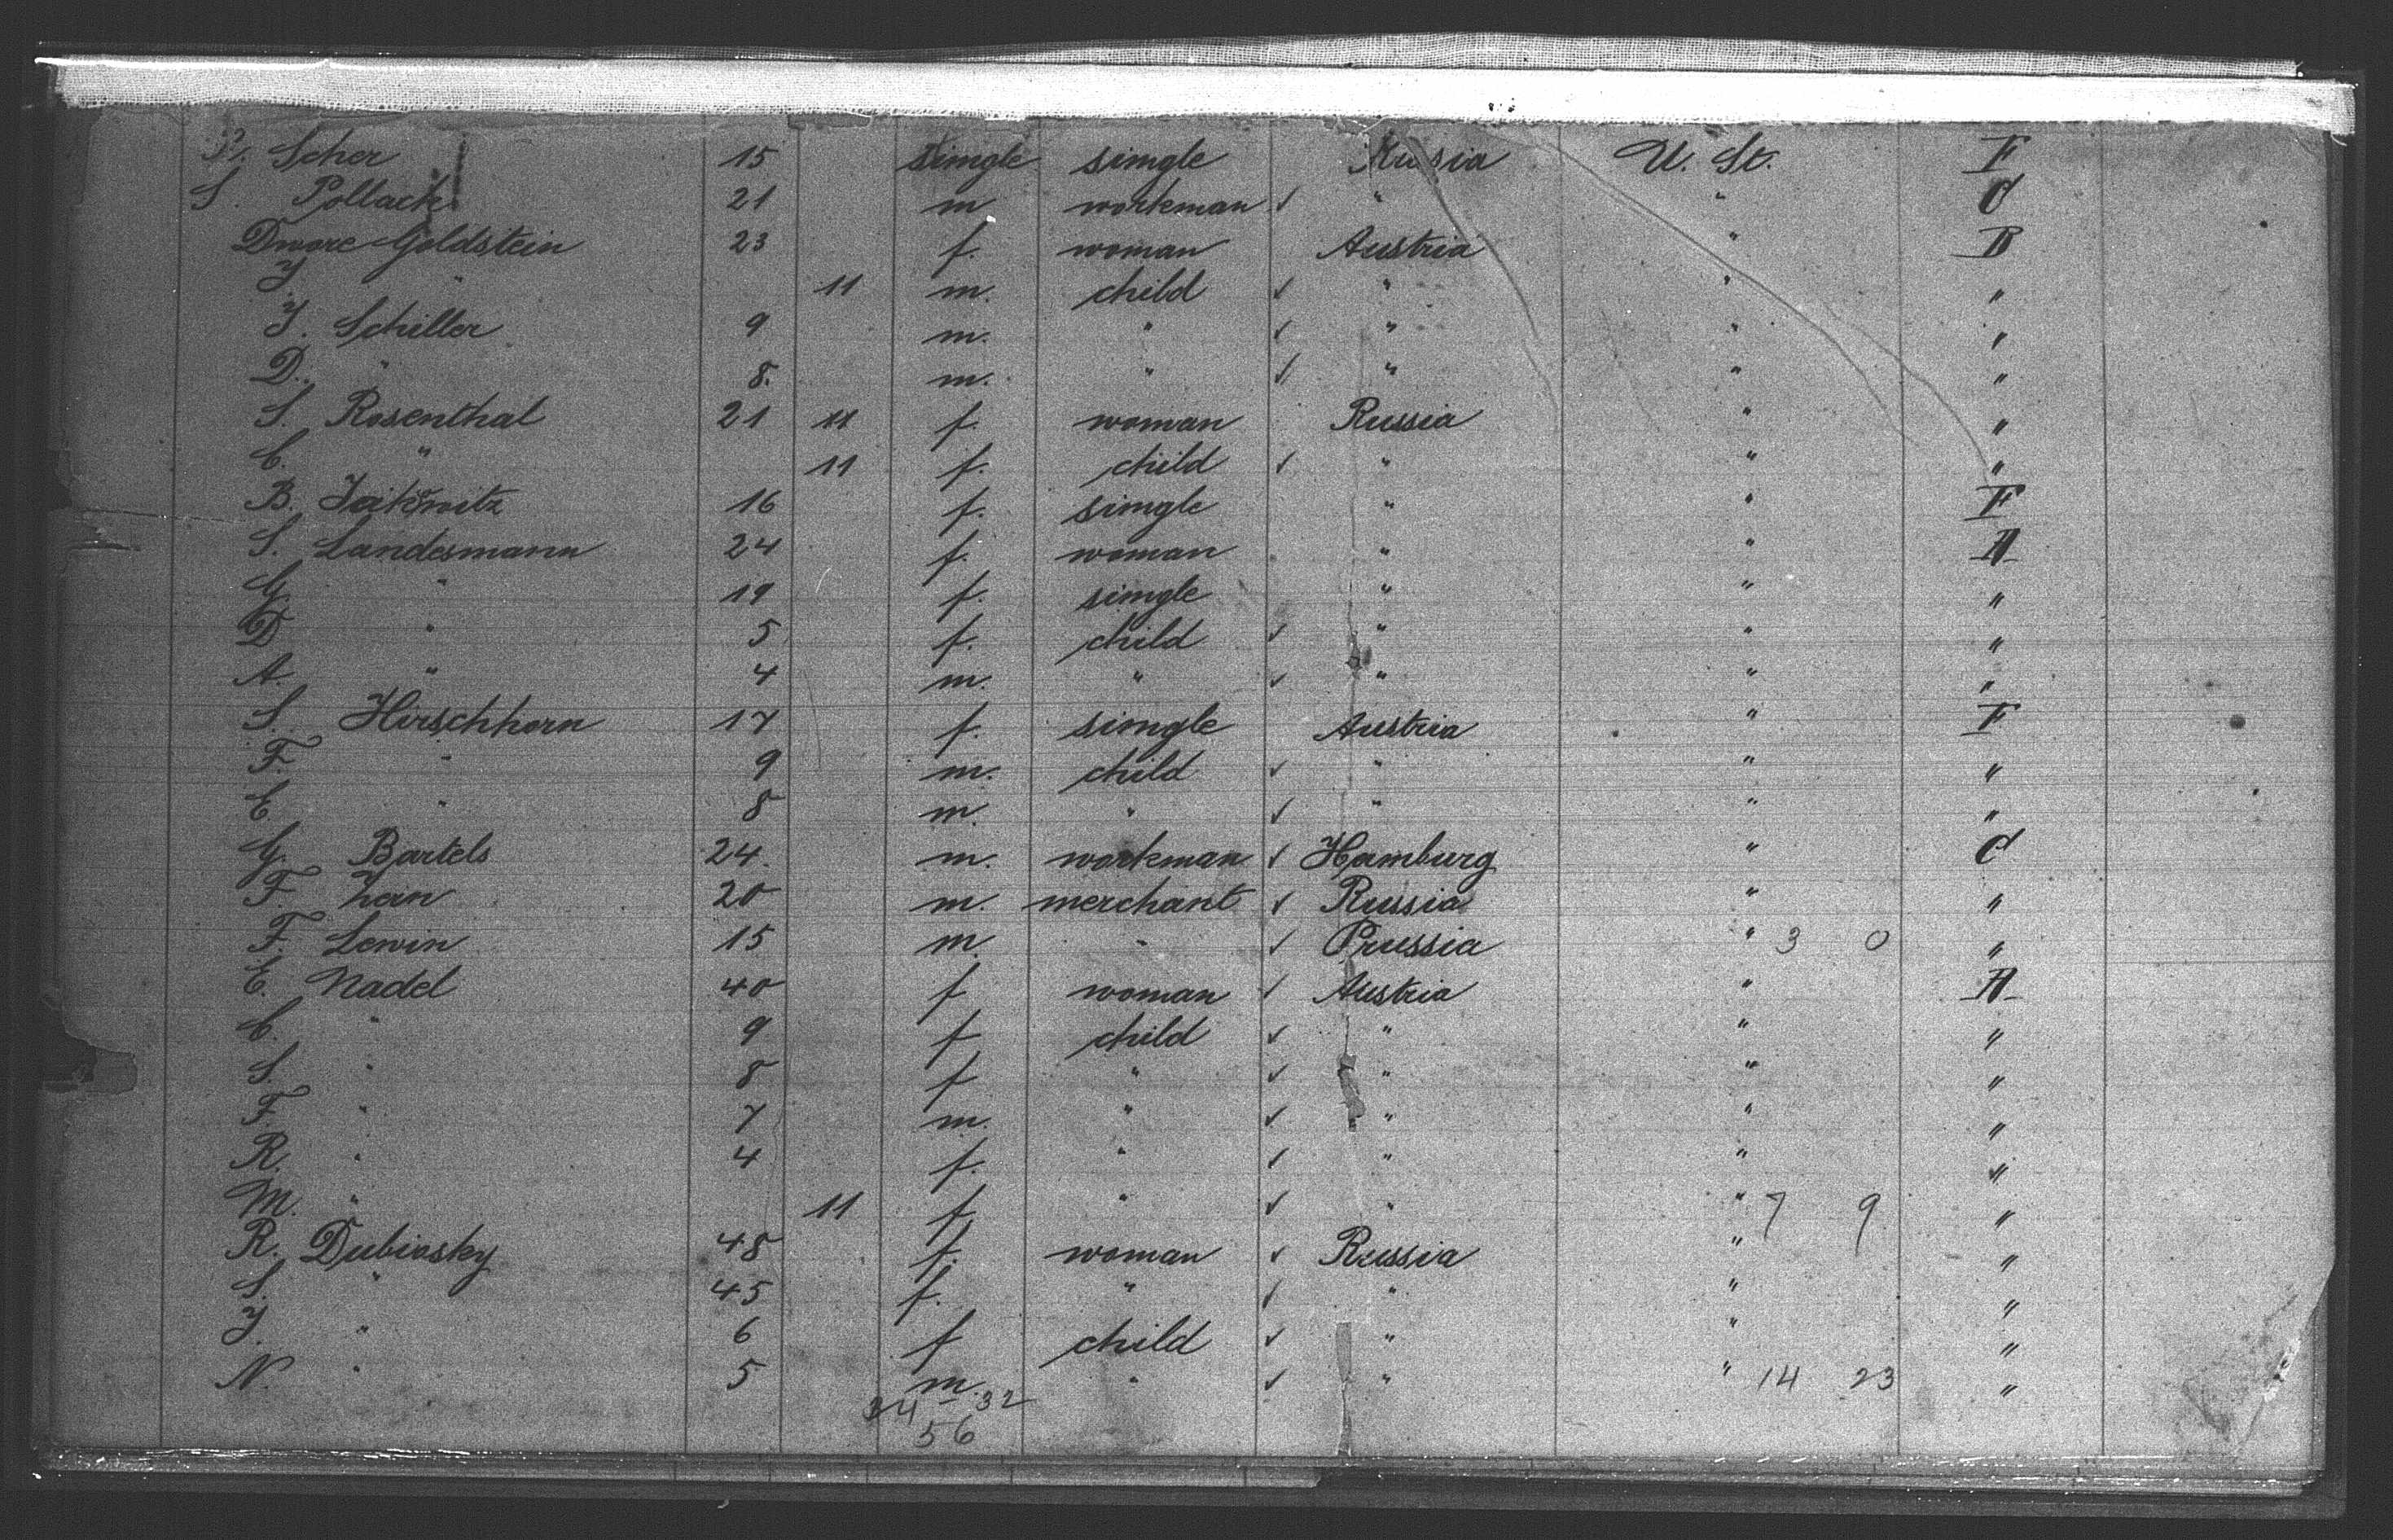 Scher 15 single single Russia U. St. F
S. Pollack 21 m workman ✓ " " C
Dwore Goldstein 23 f. woman Austria " B
J " 11 m. child ✓ " " "
J. Schiller 9 m. " ✓ " " "
D. " 8. m. " ✓ " " "
S. Rosenthal 21 11 f. woman Russia " "
C. " 11 f. child ✓ " " "
B. 16 f. single " " F
S. Landesmann 24 f. woman " " A
G. " 19 f. single " " "
D " 5 f. child ✓ " " "
A. " 4 m. " ✓ " " "
S. Hirschhorn 17 f. single Austria " F
F. " 9 m. child ✓ " " "
E. " 8 m. " ✓ " " "
G. Bartels 24. m. workman ✓ Hamburg " C
F. 20 m. merchant ✓ Russia " "
F. Lewin 15 m. " ✓ Prussia " 3 0 "
E. Nadel 40 f woman ✓ Austria " A
C. " 9 f child ✓ " " "
S. " 8 f " ✓ " " "
F. " 7 m. " ✓ " " "
R. " 4 f. " ✓ " " "
M. " 11 f " ✓ " " 7 9 "
R. Dubiosky 48 f. woman ✓ Russia " "
S. " 45 f. " ✓ " " "
J. " 6 f child ✓ " " "
N. " 5 m. " ✓ " " 14 23 "
32
56